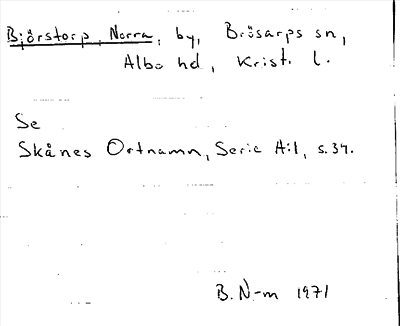 Bjärstorp, Norra, by, Brösarps sn,
Albo hd, Krist. l.
Se
Skånes Ortnamn, Serie A:1, s.34.
B. N-m 1971